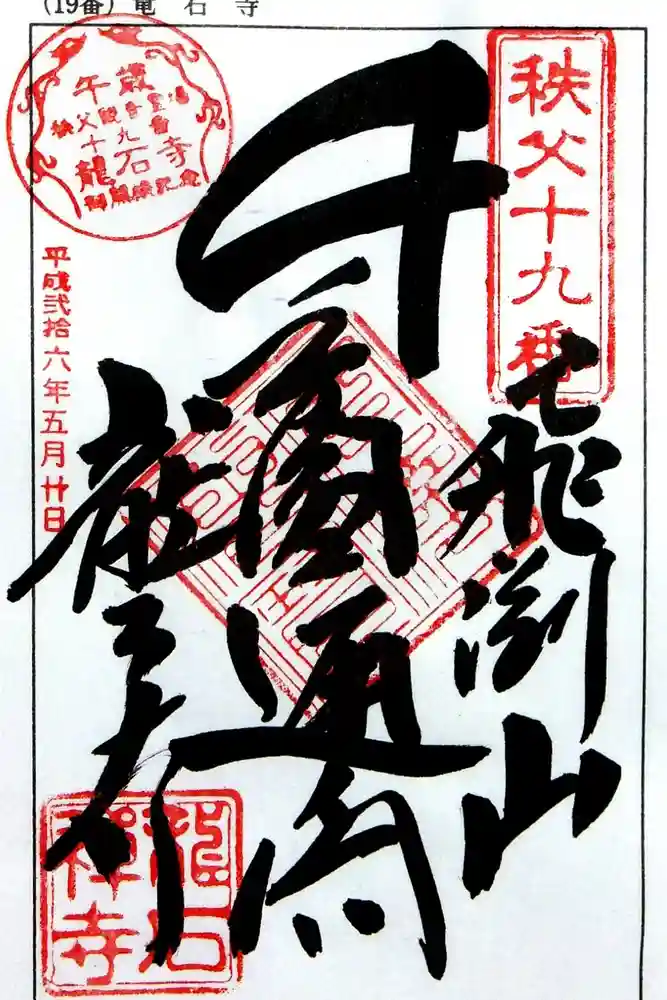 (19番) 竜石寺
秩父十九番
飛渕山
千手圓通閣
龍石寺
午歳
秩父観音霊場
十九番
龍石寺
御開帳記念
平成弐拾六年五月廿日
龍石
禅寺